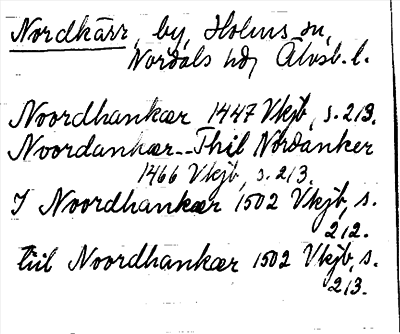 Nordkärr, by, Holms sn,
Nordals hd, Älvsb. l.
Noordhankær 1447 Vkjb, s. 213.
Noordankær--Thil Nordanker
1466 Vkjb, s. 213.
I Noordhankær 1502 Vkjb, s.
212.
tiil Noordhankær 1502 Vkjb, s.
213.